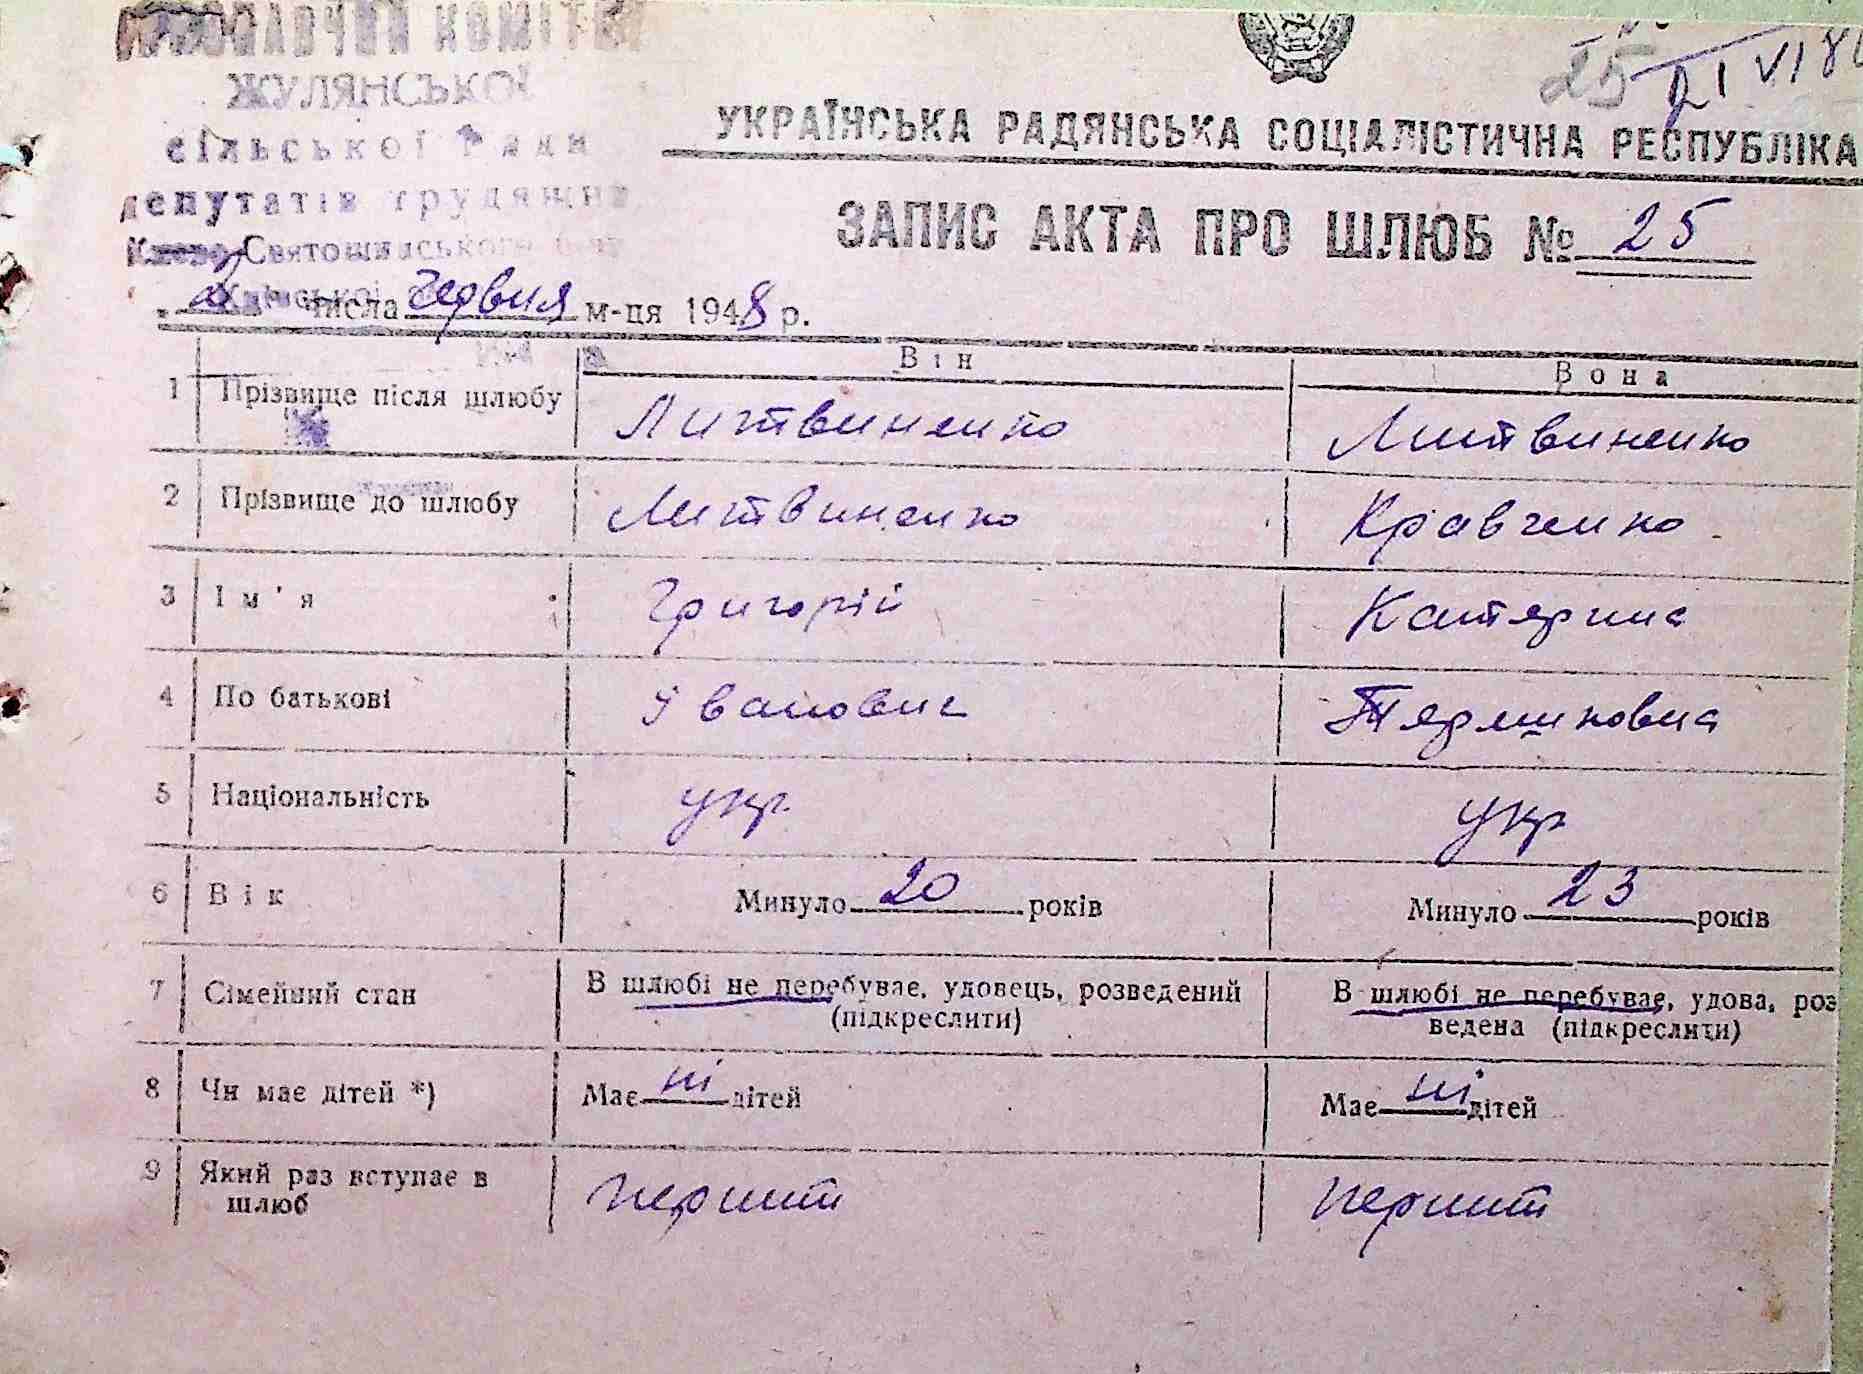 ВИКОНАВЧИЙ КОМІТЕТ
ЖУЛЯНСЬКОЇ
сільської Ради
депутатів трудящих
Києво-Святошинського
25 VI
УКРАЇНСЬКА РАДЯНСЬКА СОЦІАЛІСТИЧНА РЕСПУБЛІКА
ЗАПИС АКТА ПРО ШЛЮБ № 25
числа червня м-ця 1948 р.
Він Вона
1 Прізвище після шлюбу Литвиненко Литвиненко
2 Прізвище до шлюбу Литвиненко Кравченко
3 Ім'я Григорій Катярина
4 По батькові Іванович
5 Національність укр укр
6 Вік Минуло 20 років Минуло 23 років
7 Сімейний стан В шлюбі не перебуває, удовець, розведений (підкреслити) В шлюбі не перебуває, удова, роз
ведена (підкреслити)
8 Чи має дітей *) Має ні дітей Має ні дітей
9 Який раз вступає в
шлюб перший перший